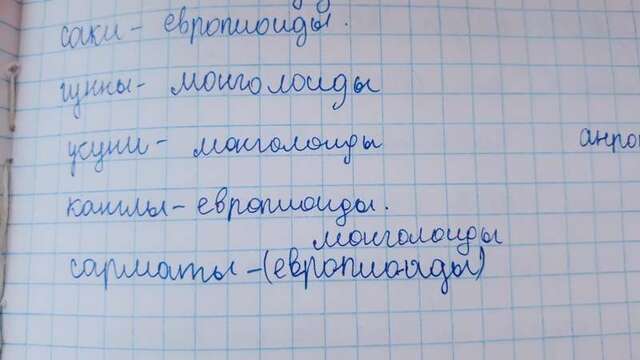 саки - европиоиды.
гунны - монголоиды
усуни - монголоиды
анро
канглы - европиоиды.
монголоиды
сарматы - (европиоиды)